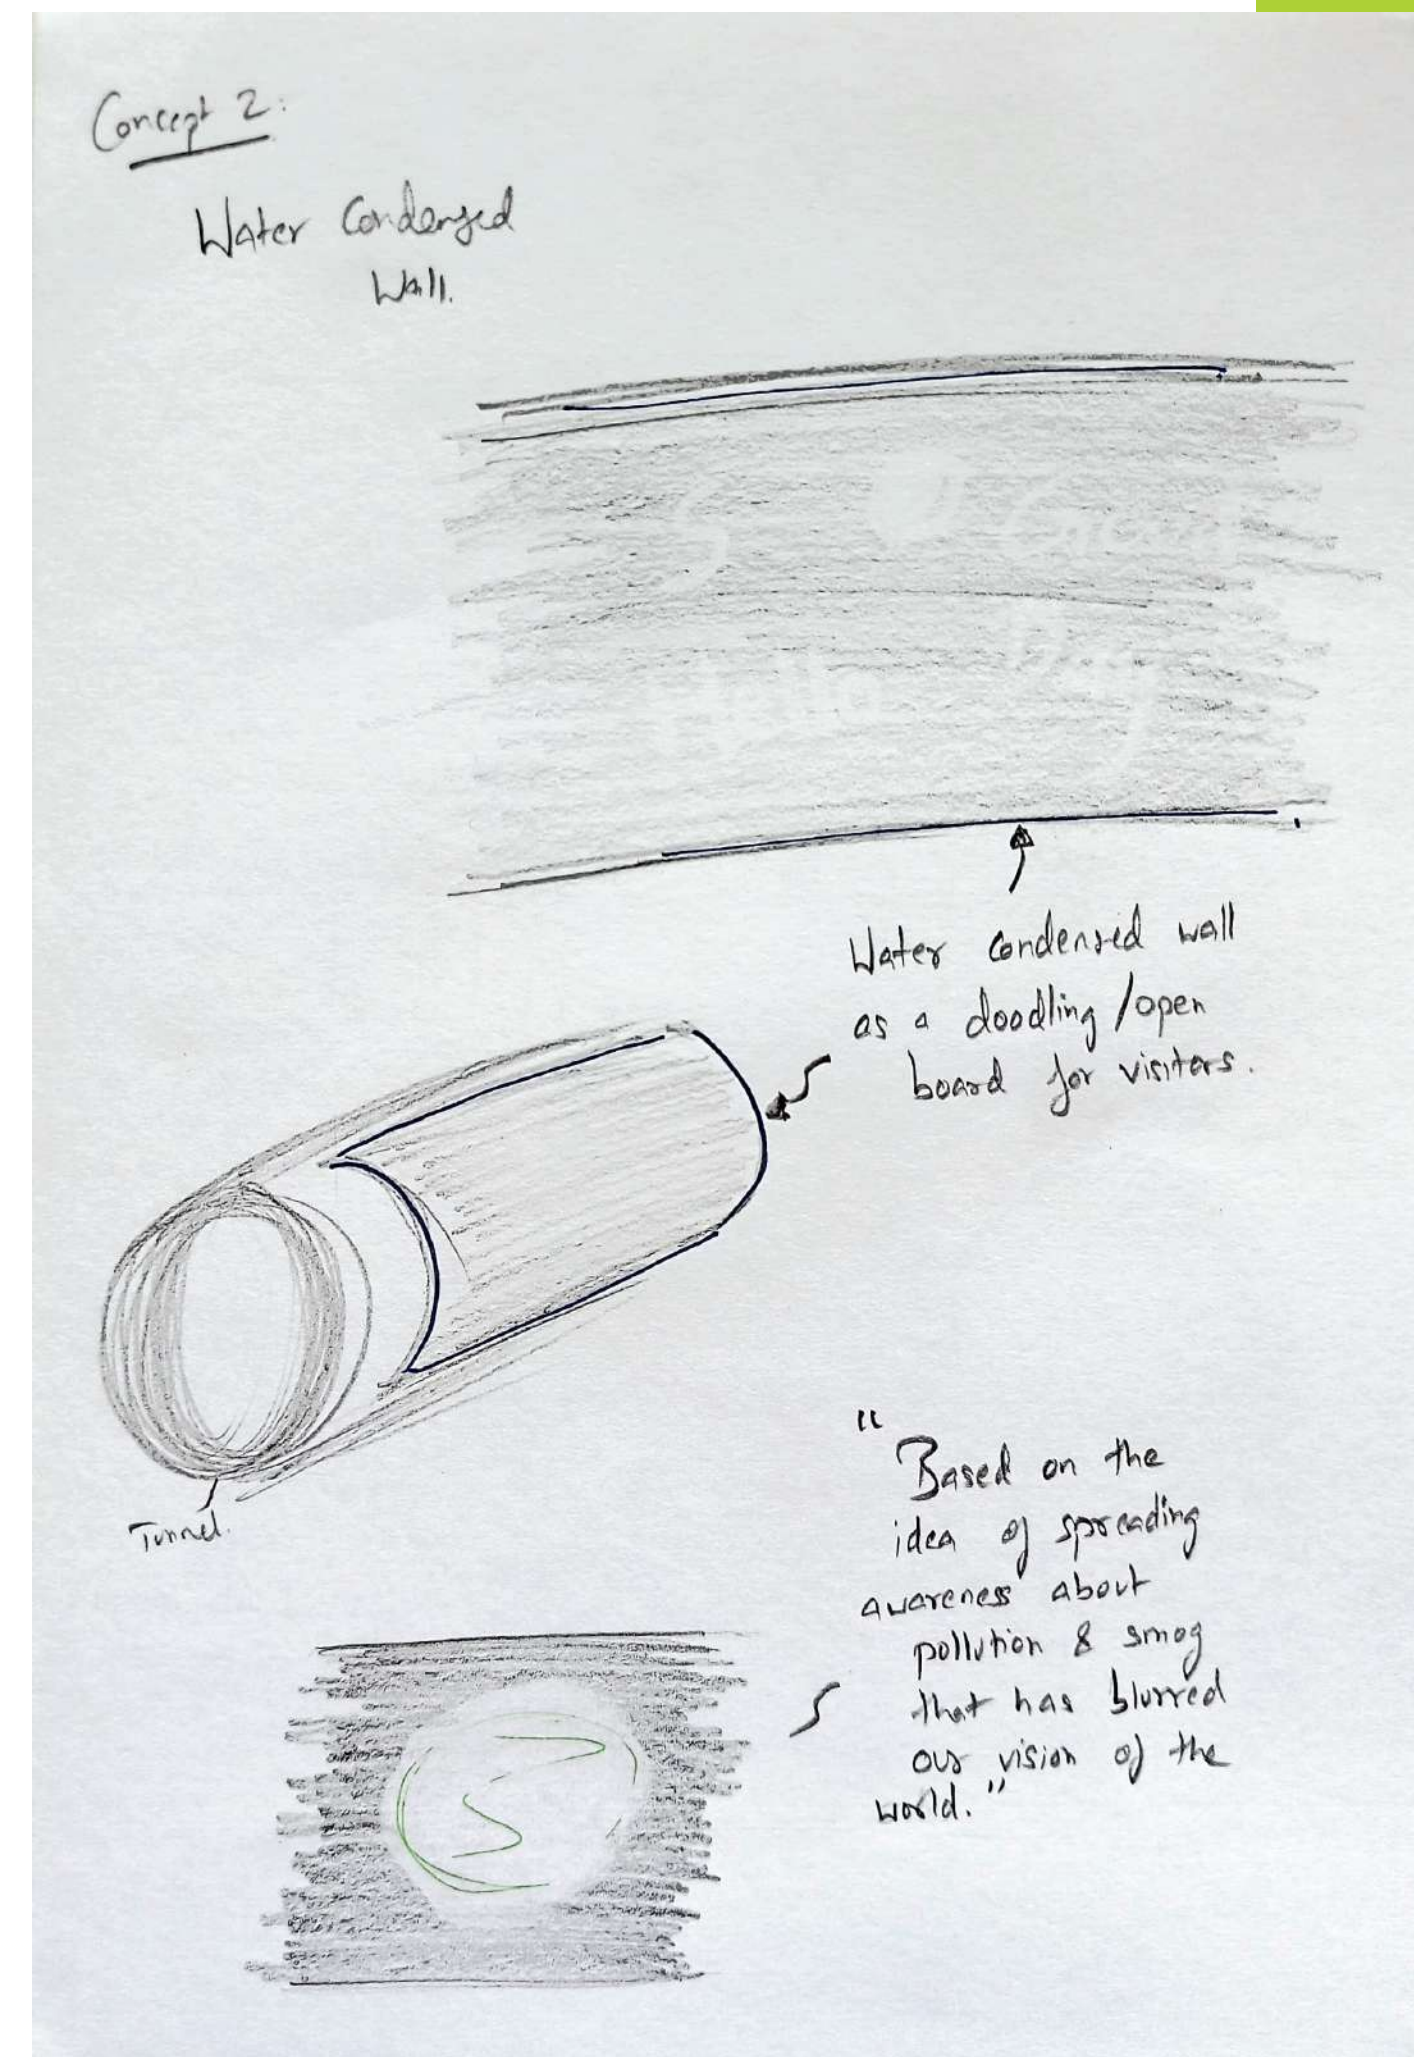 Concept 2:
Water Condensed
Wall.
Hello
Water condensed wall
as a doodling /open
board for visitors.
Tunnel.
"Based on the
idea of spreading
awareness about
pollution & smog
that has blurred
our vision of the
world."